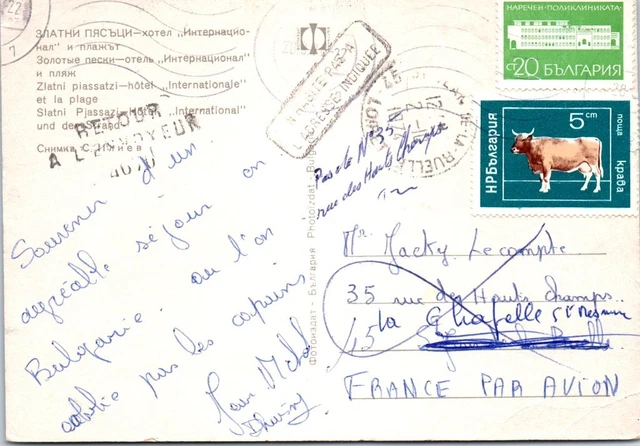 ЗЛАТНИ ПЯСЪЦИ—хотел „Интернацио-
нал" и плажът
Золотые пески—отель „Интернационал"
и пляж
Zlatni piassatzi—hôtel „Internationale"
et la plage
Slatni Pjassazi—Hotel „International"
und der Strand
Снимка С.
RETOUR
A L'ENVOYEUR
4070
Souvenir d'un
agréable séjour en
Bulgarie. ou l'on
oublie pas les copains
Фотоиздат - България Photoizdat - Bul
L'ADRESSE INDIQUEE
LA RUELLE
Pas de N° 35
rue des Hauts Champs
НАРЕЧЕН-ПОЛИКЛИНИКАТА
СТ 20 БЪЛГАРИЯ
НР България
5 ст
поща
крава
Mr. Jacky Lecompte
35 rue des Hauts champs
45 la Chapelle St Mesmin
FRANCE PAR AVION